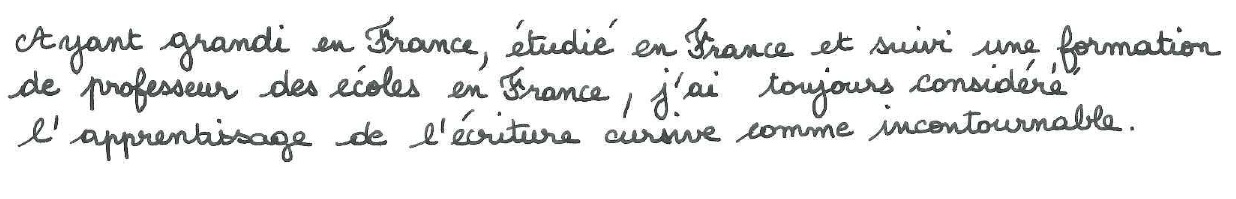 Ayant grandi en France, étudié en France et suivi une formation
de professeur des écoles en France, j'ai toujours considéré
l'apprentissage de l'écriture cursive comme incontournable.